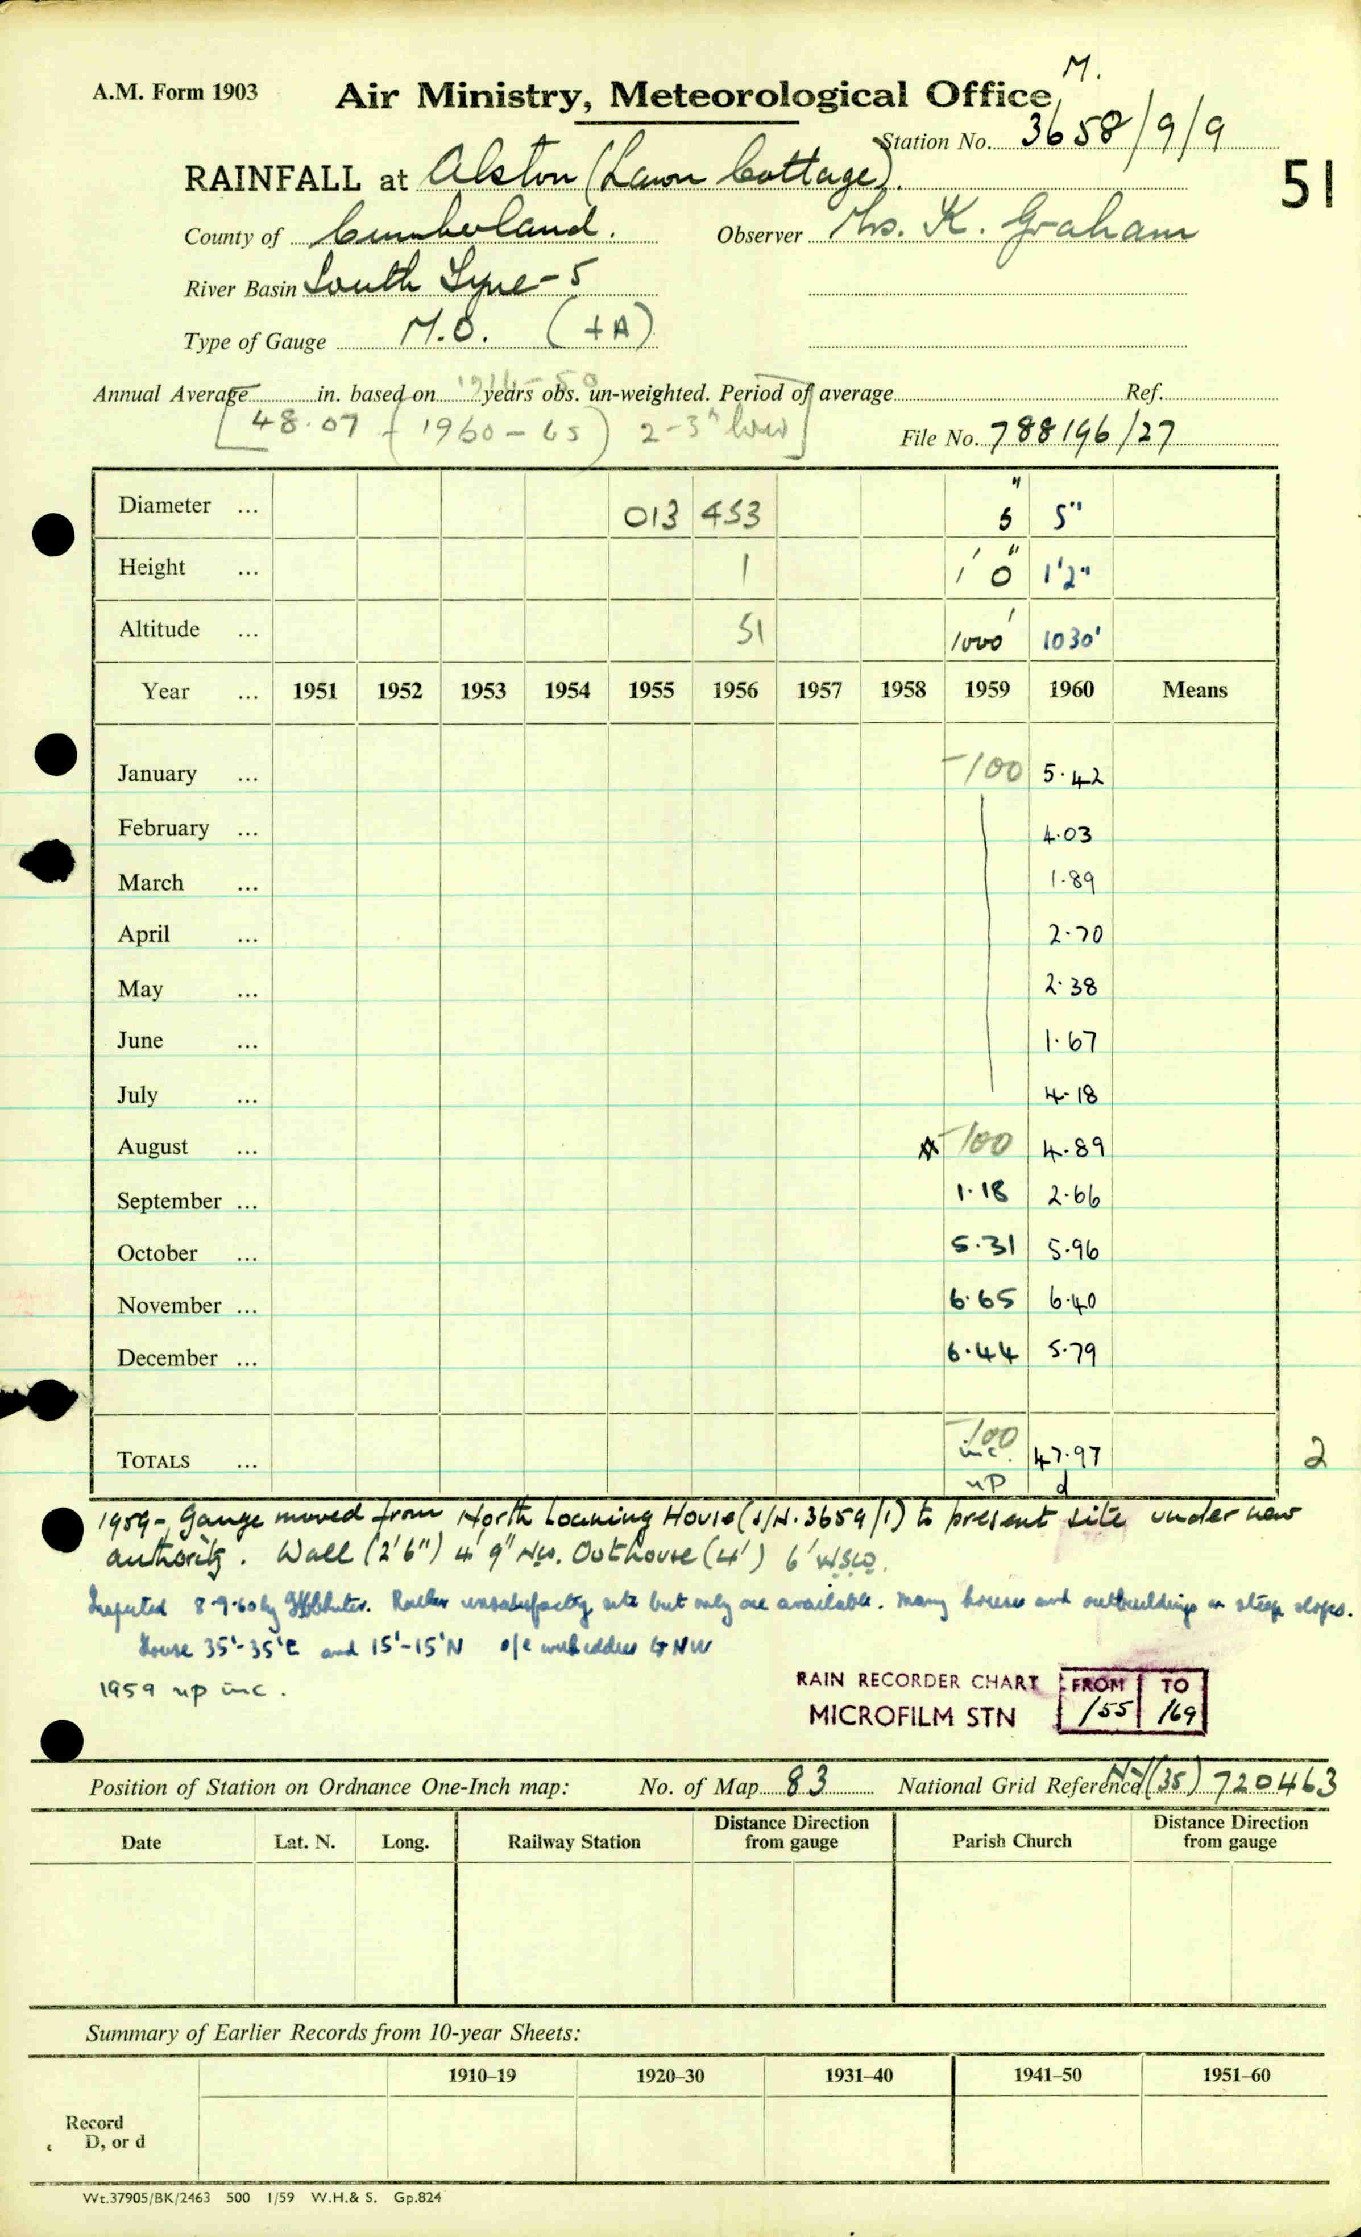 M.
A.M. Form 1903 Air Ministry, Meteorological Office,
Station No. 3658/9/9
RAINFALL at Alston (Lawn Cottage). 51
County of Cumberland. Observer Mrs. K. Graham
River Basin South Tyne - 5
Type of Gauge M.O. (+A)
Annual Average in. based on 1916-50 years obs. un-weighted. Period of average Ref.
[48.07 - (1960-65) 2-3" low] File No. 788196/27
Diameter ... 013 453 5" 5"
Height ... 1 1' 0" 1'2"
Altitude ... 51 1000' 1030'
Year ... 1951 1952 1953 1954 1955 1956 1957 1958 1959 1960 Means
January ... -100 5.42
February ... 4.03
March ... 1.89
April ... 2.70
May ... 2.38
June ... 1.67
July ... 4.18
August ... -100 4.89
September ... 1.18 2.66
October ... 5.31 5.96
November ... 6.65 6.40
December ... 6.44 5.79
-100
TOTALS ... inc. 47.97 2
up d
1959 - Gauge moved from North Loaning House (S/N. 3659/1) to present site under new
authority. Wall (2'6") 4'9" NW. Outhouse (4') 6' WSW.
Inspected 8.9.60 by Rather unsatisfactory site but only one available. Many houses and outbuildings on steep slopes.
House 35'-35'E and 15'-15'N o/e with eddies to NW
1959 up inc.
RAIN RECORDER CHART FROM TO
MICROFILM STN /55 /69
Position of Station on Ordnance One-Inch map: No. of Map 83 National Grid Reference NY(35) 720463
Date Lat. N. Long. Railway Station Distance Direction from gauge Parish Church Distance Direction from gauge
Summary of Earlier Records from 10-year Sheets:
1910–19 1920–30 1931–40 1941–50 1951–60
Record
D, or d
Wt.37905/BK/2463 500 1/59 W.H.& S. Gp.824